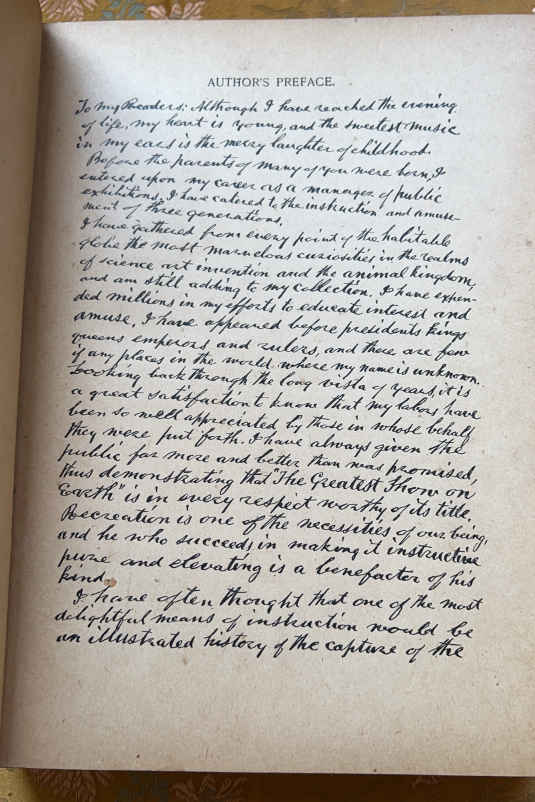 AUTHOR'S PREFACE.
To my Readers: Although I have reached the evening
of life, my heart is young, and the sweetest music
in my ears is the merry laughter of childhood.
Before the parents of many of you were born, I
entered upon my career as a manager of public
exhibitions. I have catered to the instruction and amuse-
ment of three generations.
I have gathered from every point of the habitable
globe the most marvelous curiosities in the realms
of science art invention and the animal kingdom,
and am still adding to my collection. I have expen-
ded millions in my efforts to educate interest and
amuse. I have appeared before presidents kings
queens emperors and rulers, and there are few
if any places in the world where my name is unknown.
Looking back through the long vista of years, it is
a great satisfaction t know that my labors have
been so well appreciated by those in whose behalf
they were put forth. I have always given the
public far more and better than was promised,
thus demonstrating that "The Greatest Show on
Earth" is in every respect worthy of its title.
Recreation is one of the necessities of our being,
and he who succeeds in making it instructive
pure and elevating is a benefactor of his
kind.
I have often thought that one of the most
delightful means of instruction would be
an illustrated history of the capture of the